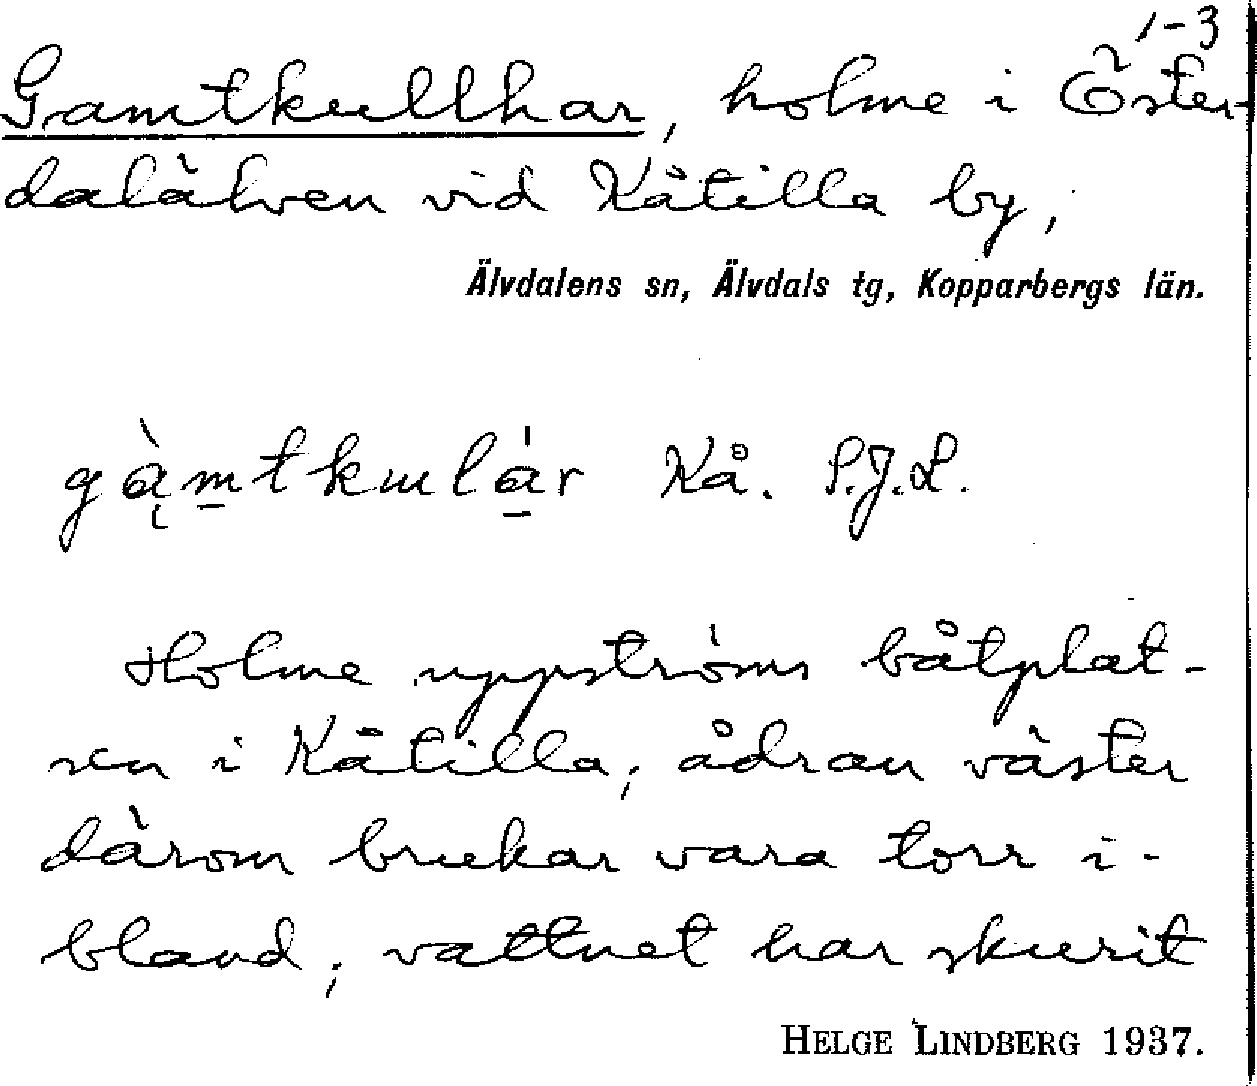 1-3
Gamtkullhar, holme i Öster-
dalälven vid Kåtilla by,
Älvdalens sn, Älvdals tg, Kopparbergs län.
gą̀m̱tkɯlá̱r Kå. S.J.L.
Holme uppströms båtplat-
sen i Kåtilla; ådran väster
därom brukar vara torr i-
bland; vattnet har skurit
HELGE LINDBERG 1937.